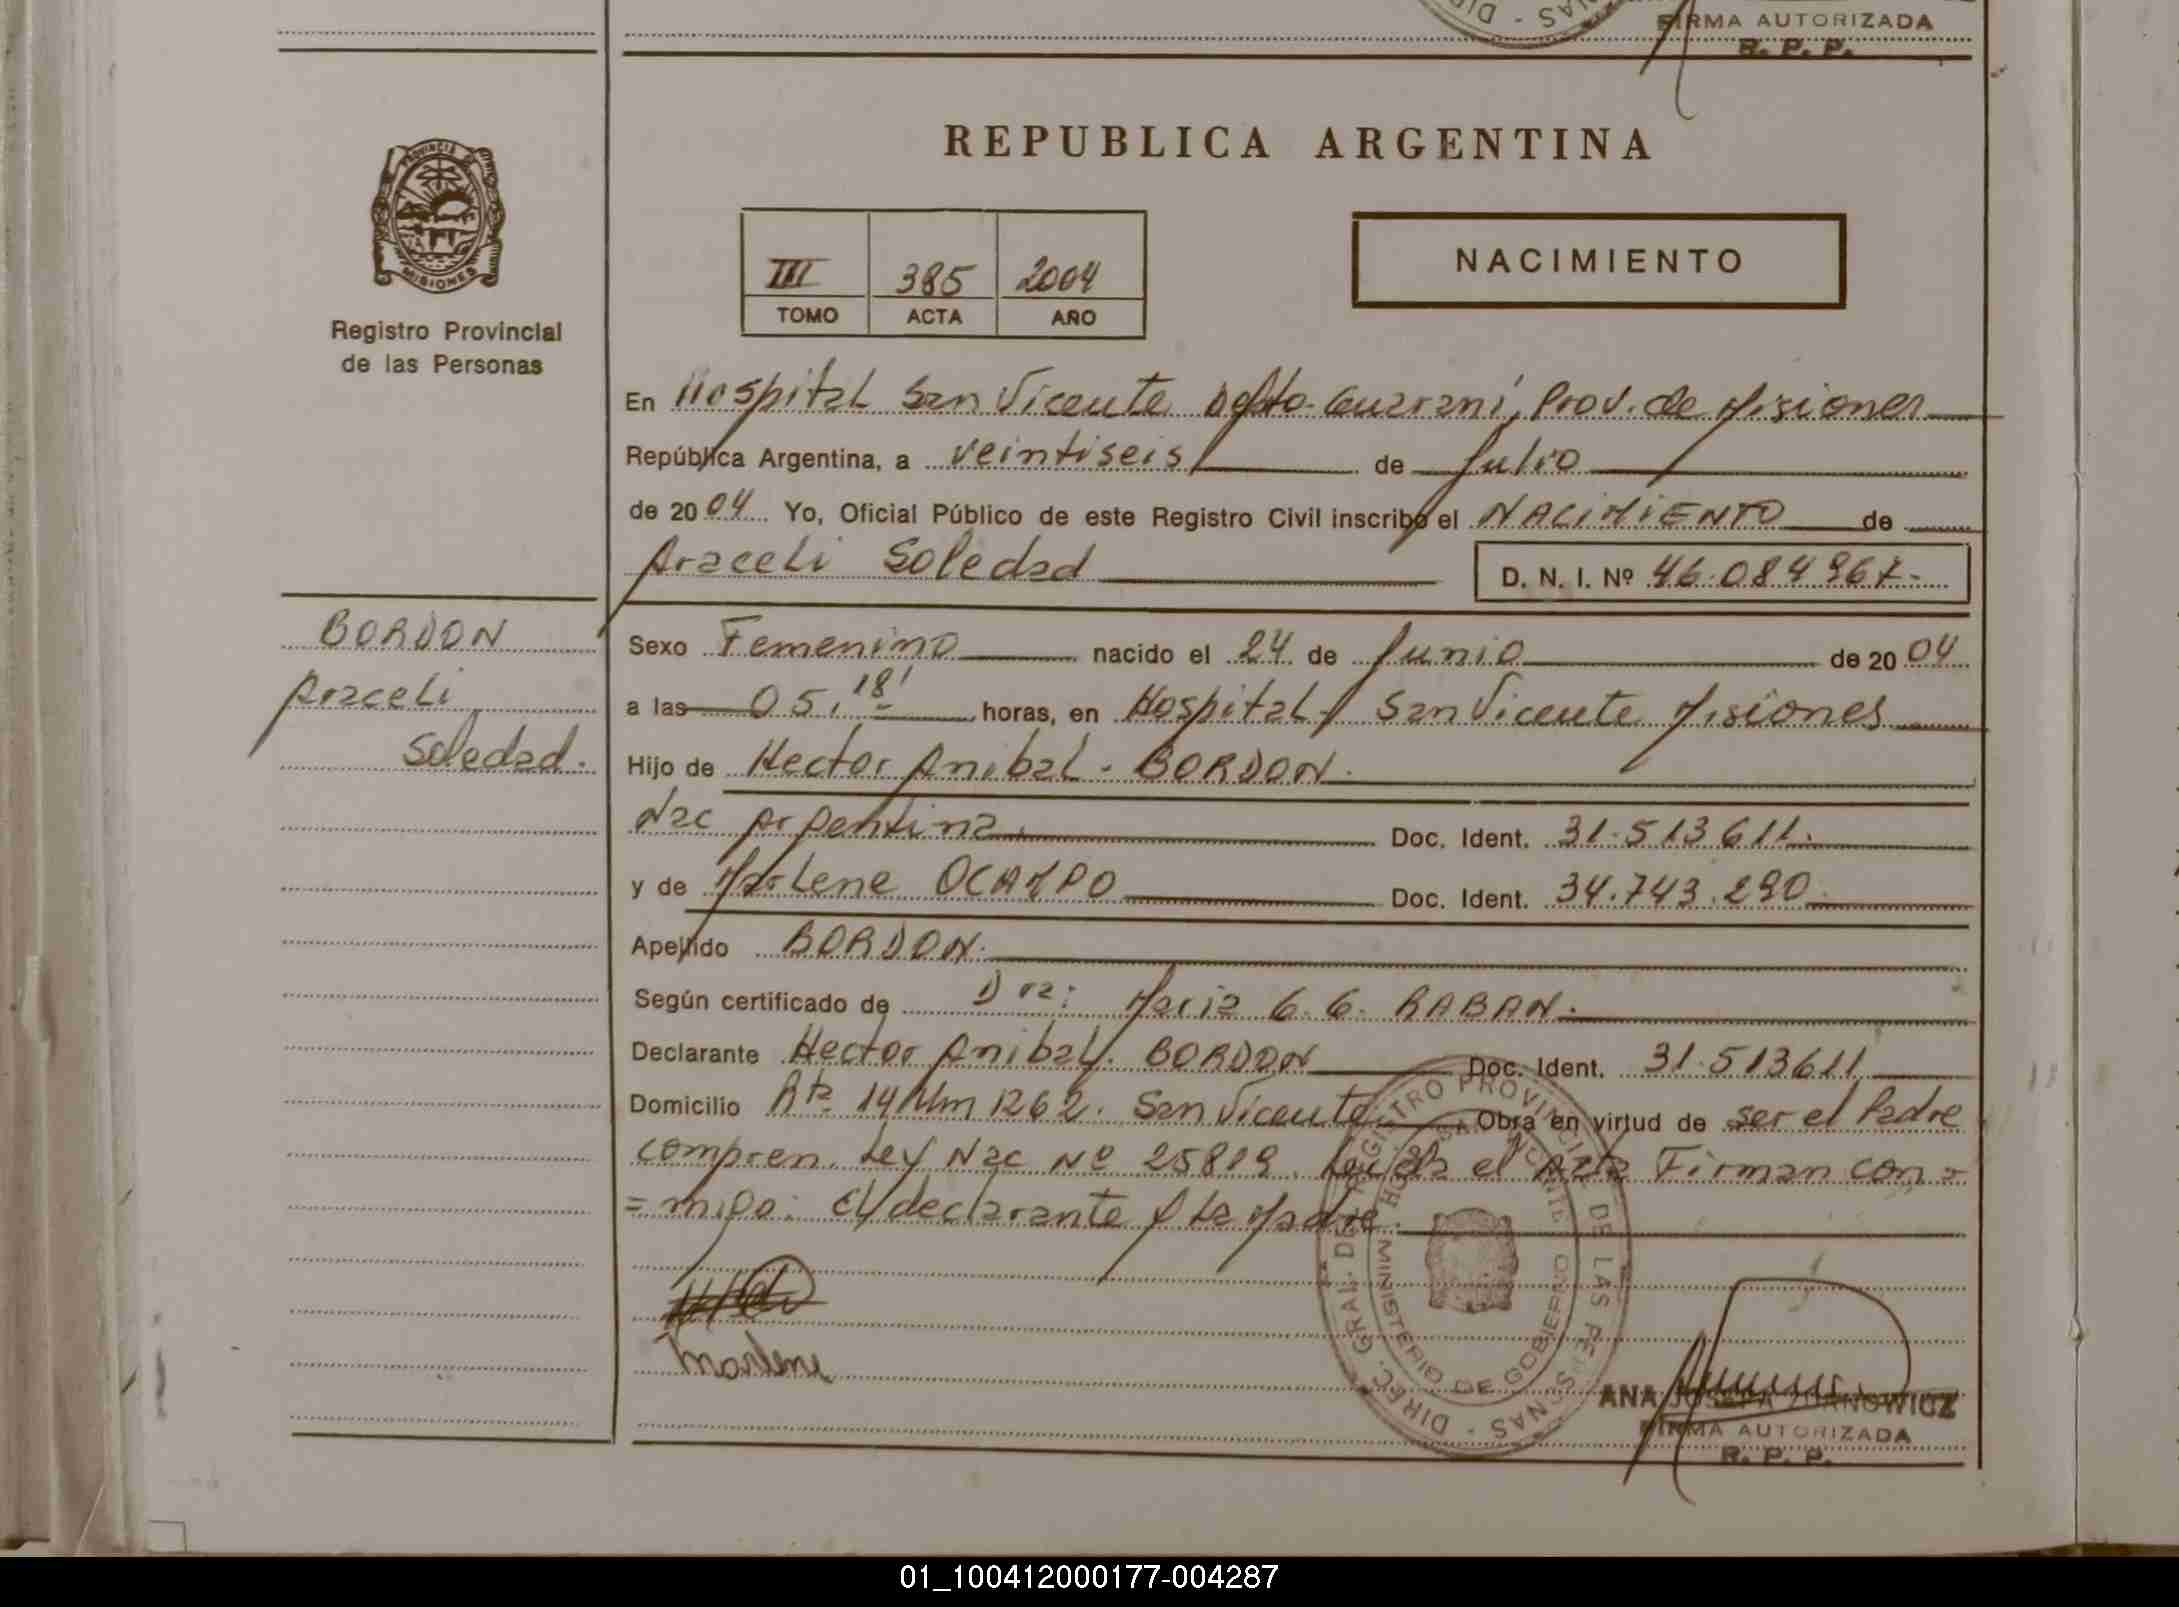 DIR - NAS
FIRMA AUTORIZADA
R. P. P.
PROVINCIA DE
MISIONES
Registro Provincial
de las Personas
REPUBLICA ARGENTINA
III 385 2004
TOMO ACTA AÑO
NACIMIENTO
En Hospital San Vicente Dpto. Guarani, Prov. de Misiones
República Argentina, a veintiseis de Julio
de 2004 Yo, Oficial Público de este Registro Civil inscribo el NACIMIENTO de
Araceli Soledad
D. N. I. Nº 46.084967-
BORDON
Araceli
Soledad.
Sexo Femenino nacido el 24 de Junio de 2004
a las 05.18' horas, en Hospital San Vicente Misiones
Hijo de Hector Anibal. BORDON.
Nac Argentina. Doc. Ident. 31.513611.
y de Marlene OCAMPO Doc. Ident. 34.743.290.
Apellido BORDON.
Según certificado de Dra: Maria G. G. RABAN.
Declarante Hector Anibal. BORDON Doc. Ident. 31.513611
Domicilio Rta 14 Km 1262. San Vicente Obra en virtud de ser el Padre
compren. Ley Nac Nº 25819. Leida el Acta Firman con =
= migo: El declarante y La Madre.
DIREC. GRAL. DEL REGISTRO PROVINCIAL DE LAS PERSONAS -
MINISTERIO DE GOBIERNO
Marlene
ANA JOSEFA ZDANOWICZ
FIRMA AUTORIZADA
R. P. P.
01_100412000177-004287